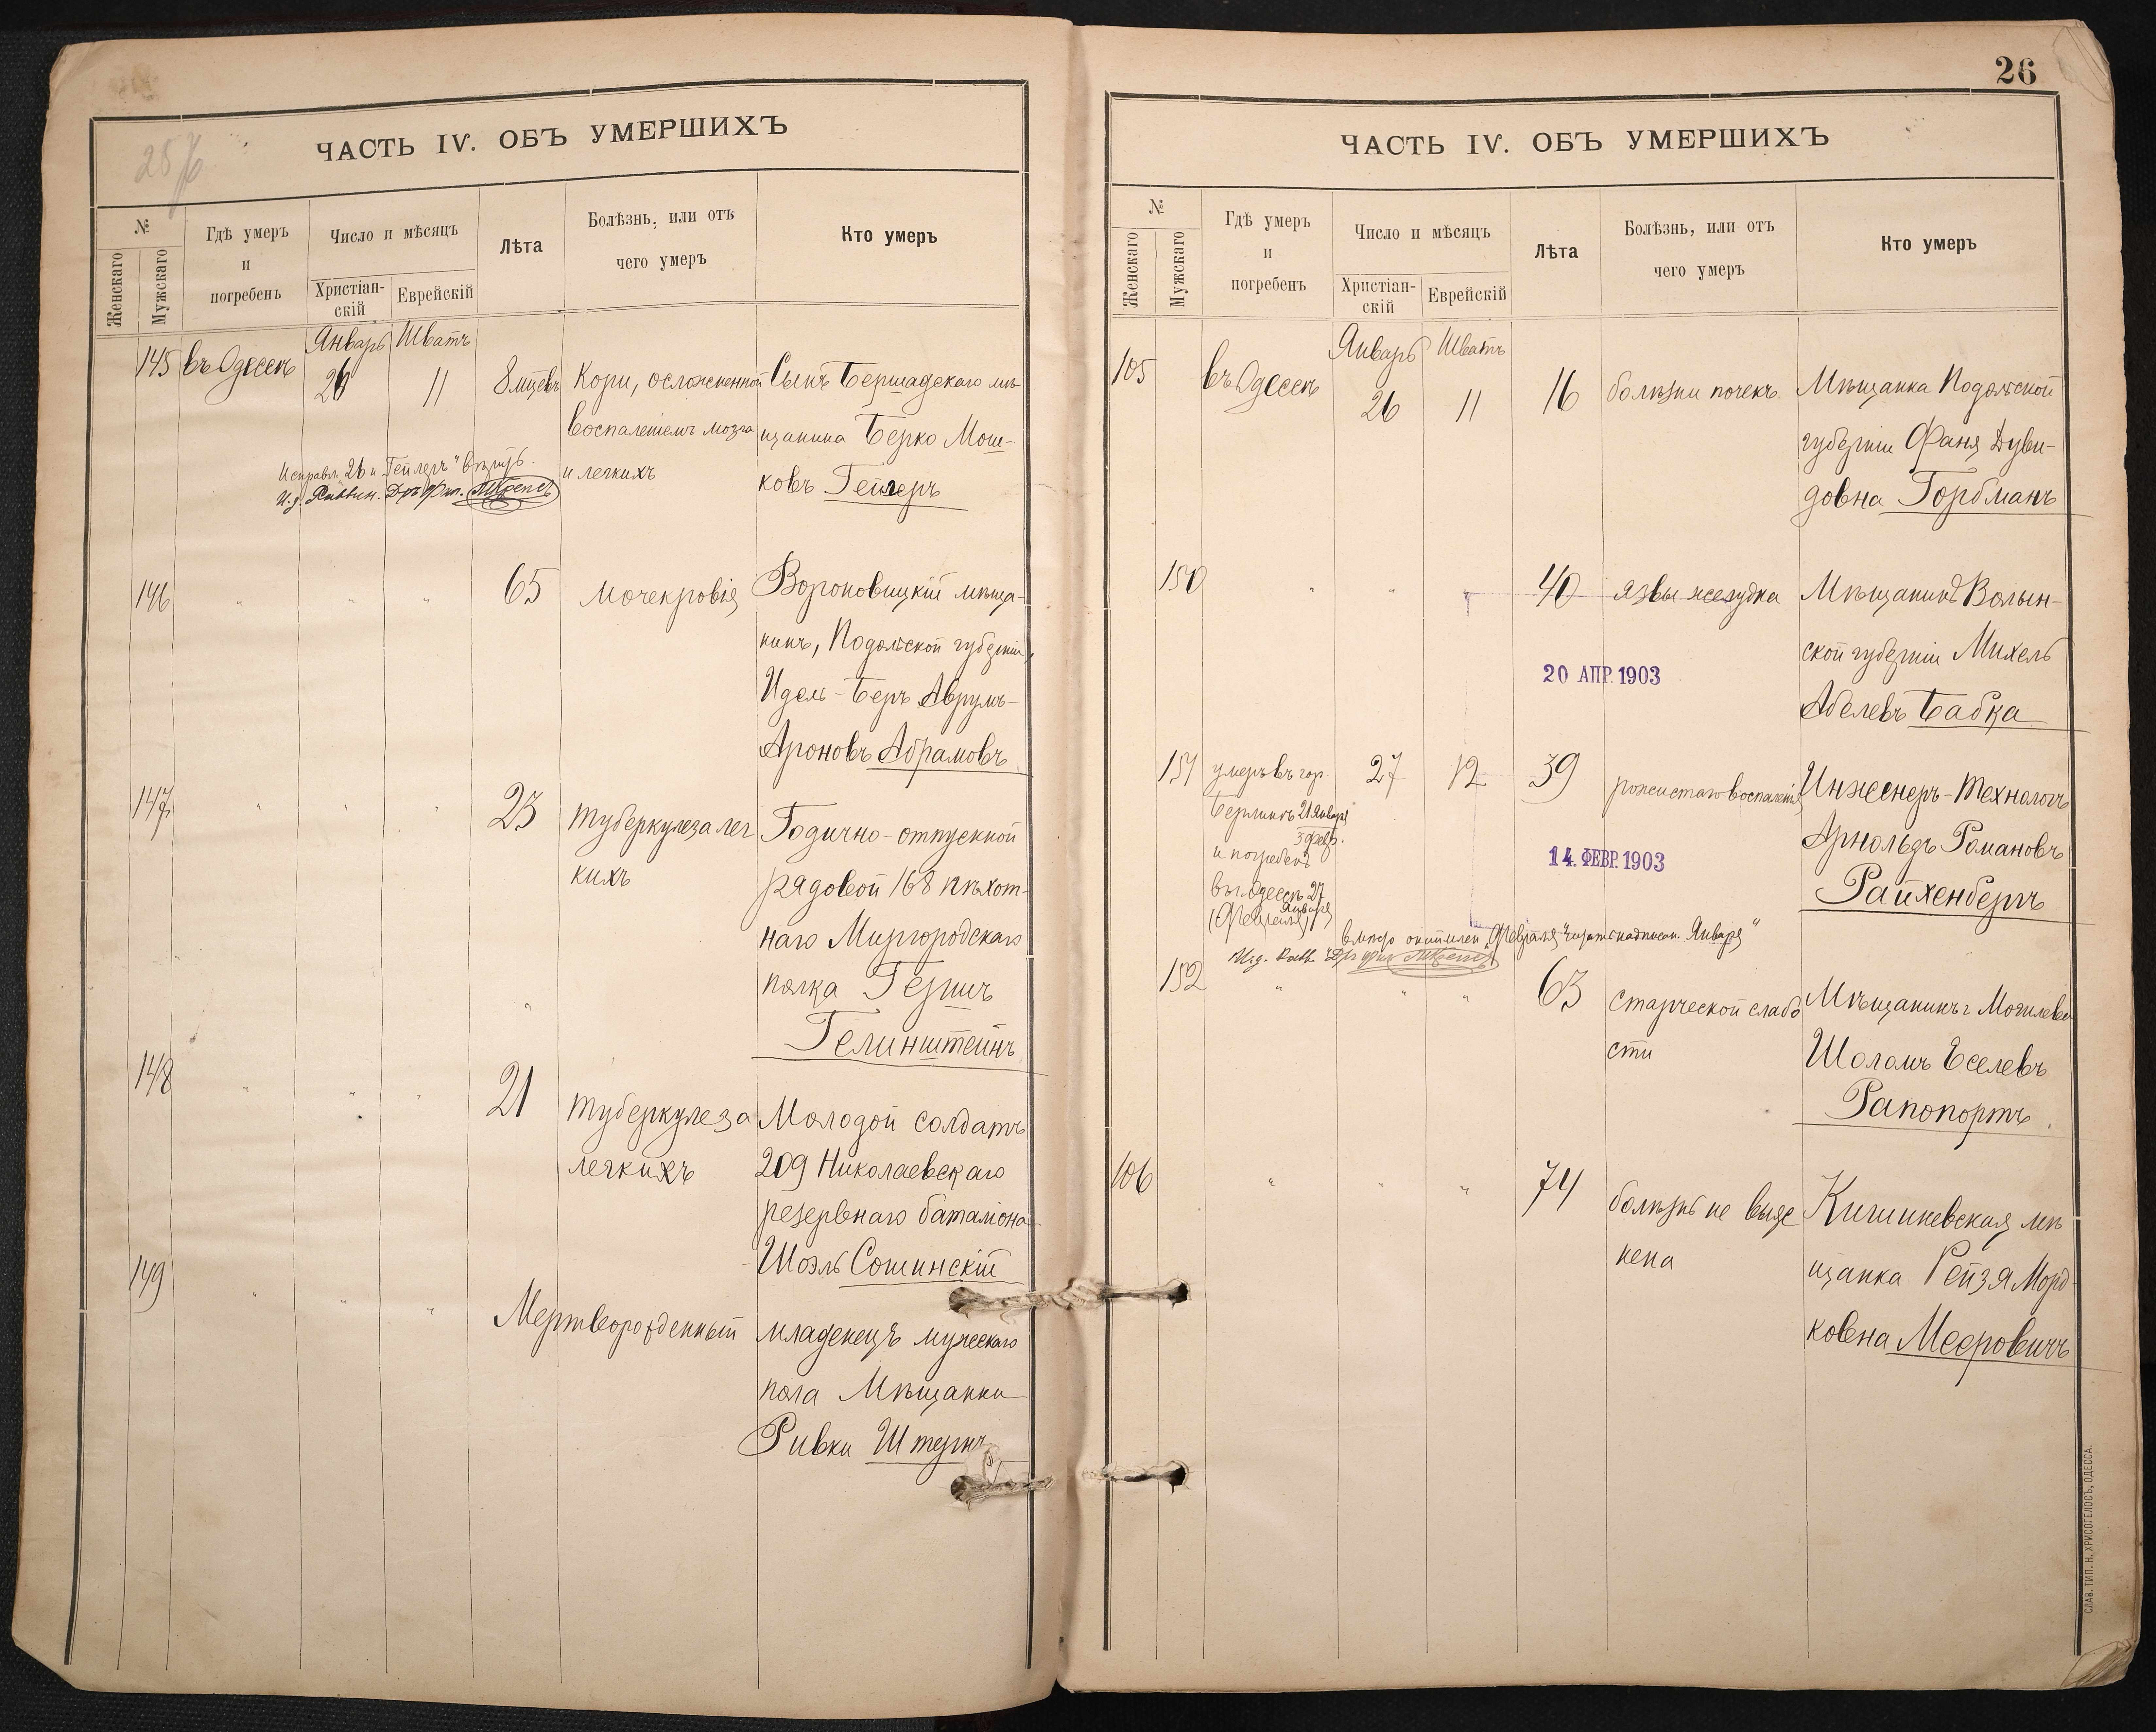 25/6
ЧАСТЬ IV. ОБЪ УМЕРШИХЪ
№
Женскаго
Мужскаго
Гдѣ умеръ
и
погребенъ
Число и мѣсяцъ
Христіан-
скій
Еврейскій
Лѣта
Болѣзнь, или отъ
чего умеръ
Кто умеръ
Январь Шватъ
145 въ Одессѣ 26 11 8 мцевъ Кори, осложненной Сынъ Бершадскаго мѣ
воспаленіемъ мозга щанина Берко Мош-
и легкихъ ковъ Гейлеръ
Исправл. 26 и "Гейлеръ" вѣрить.
И. д. Раввин. Дръ Фил.
146 " " " 65 Мочекровія Вороновицкій мѣща-
нинъ, Подольской губерніи,
Идель-Беръ Аврумъ-
Ароновъ Абрамовъ
147 " " " 23 Туберкулеза лег Годично-отпускной
кихъ рядовой 168 пѣхот-
наго Миргородскаго
полка Гершъ
Гелинштейнъ
148 " " " 21 Туберкулеза Молодой солдатъ
легкихъ 209 Николаевскаго
резервнаго баталіона
Шоэль Сошинскій
149 " " " Мертворожденный младенецъ мужескаго
пола Мѣщанки
Ривки Штернъ
26
ЧАСТЬ IV. ОБЪ УМЕРШИХЪ
№
Женскаго
Мужскаго
Гдѣ умеръ
и
погребенъ
Число и мѣсяцъ
Христіан-
скій
Еврейскій
Лѣта
Болѣзнь, или отъ
чего умеръ
Кто умеръ
Январь Шватъ
105 въ Одессѣ 26 11 16 болѣзни почекъ Мѣщанка Подольской
губерніи Фаня Дуви-
довна Горбманъ
150 " " " 40 язвы желудка Мѣщанинъ Волын-
ской губерніи Михель
Абелевъ Бабка
20 АПР. 1903
151 умеръ въ гор. 27 12 39 рожистаго воспаленія Инженеръ-Технологъ
Берлинѣ 21 Января
3 февр.
и погребенъ
въ г. Одессѣ 27
Января
(Февраля)
Арнольдъ Романовъ
Райхенбергъ
14. ФЕВР. 1903
вмѣсто "Февраля" надписан. "Января"
И. д. Равв. Дръ фил.
152 " " " 63 старческой слабо Мѣщанинъ г. Могилева
сти Шоломъ Еселевъ
Рапопортъ.
106 " " " 74 болѣзнь не выяс Кишиневская мѣ
нена щанка Рейзя Морд-
ковна Мееровичъ
СЛАВ. ТИП. Н. ХРИСОГЕЛОСЪ, ОДЕССА.